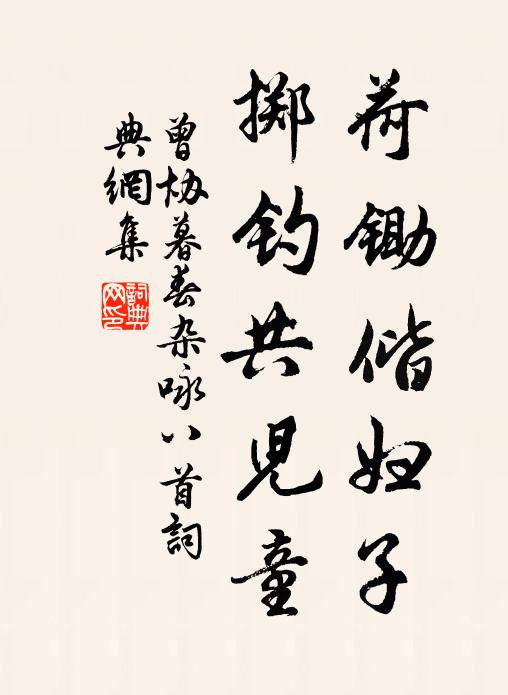 荷锄偕妇子
掷钓共児童
曾协暮春杂咏八首詞
典網集
詞典網印